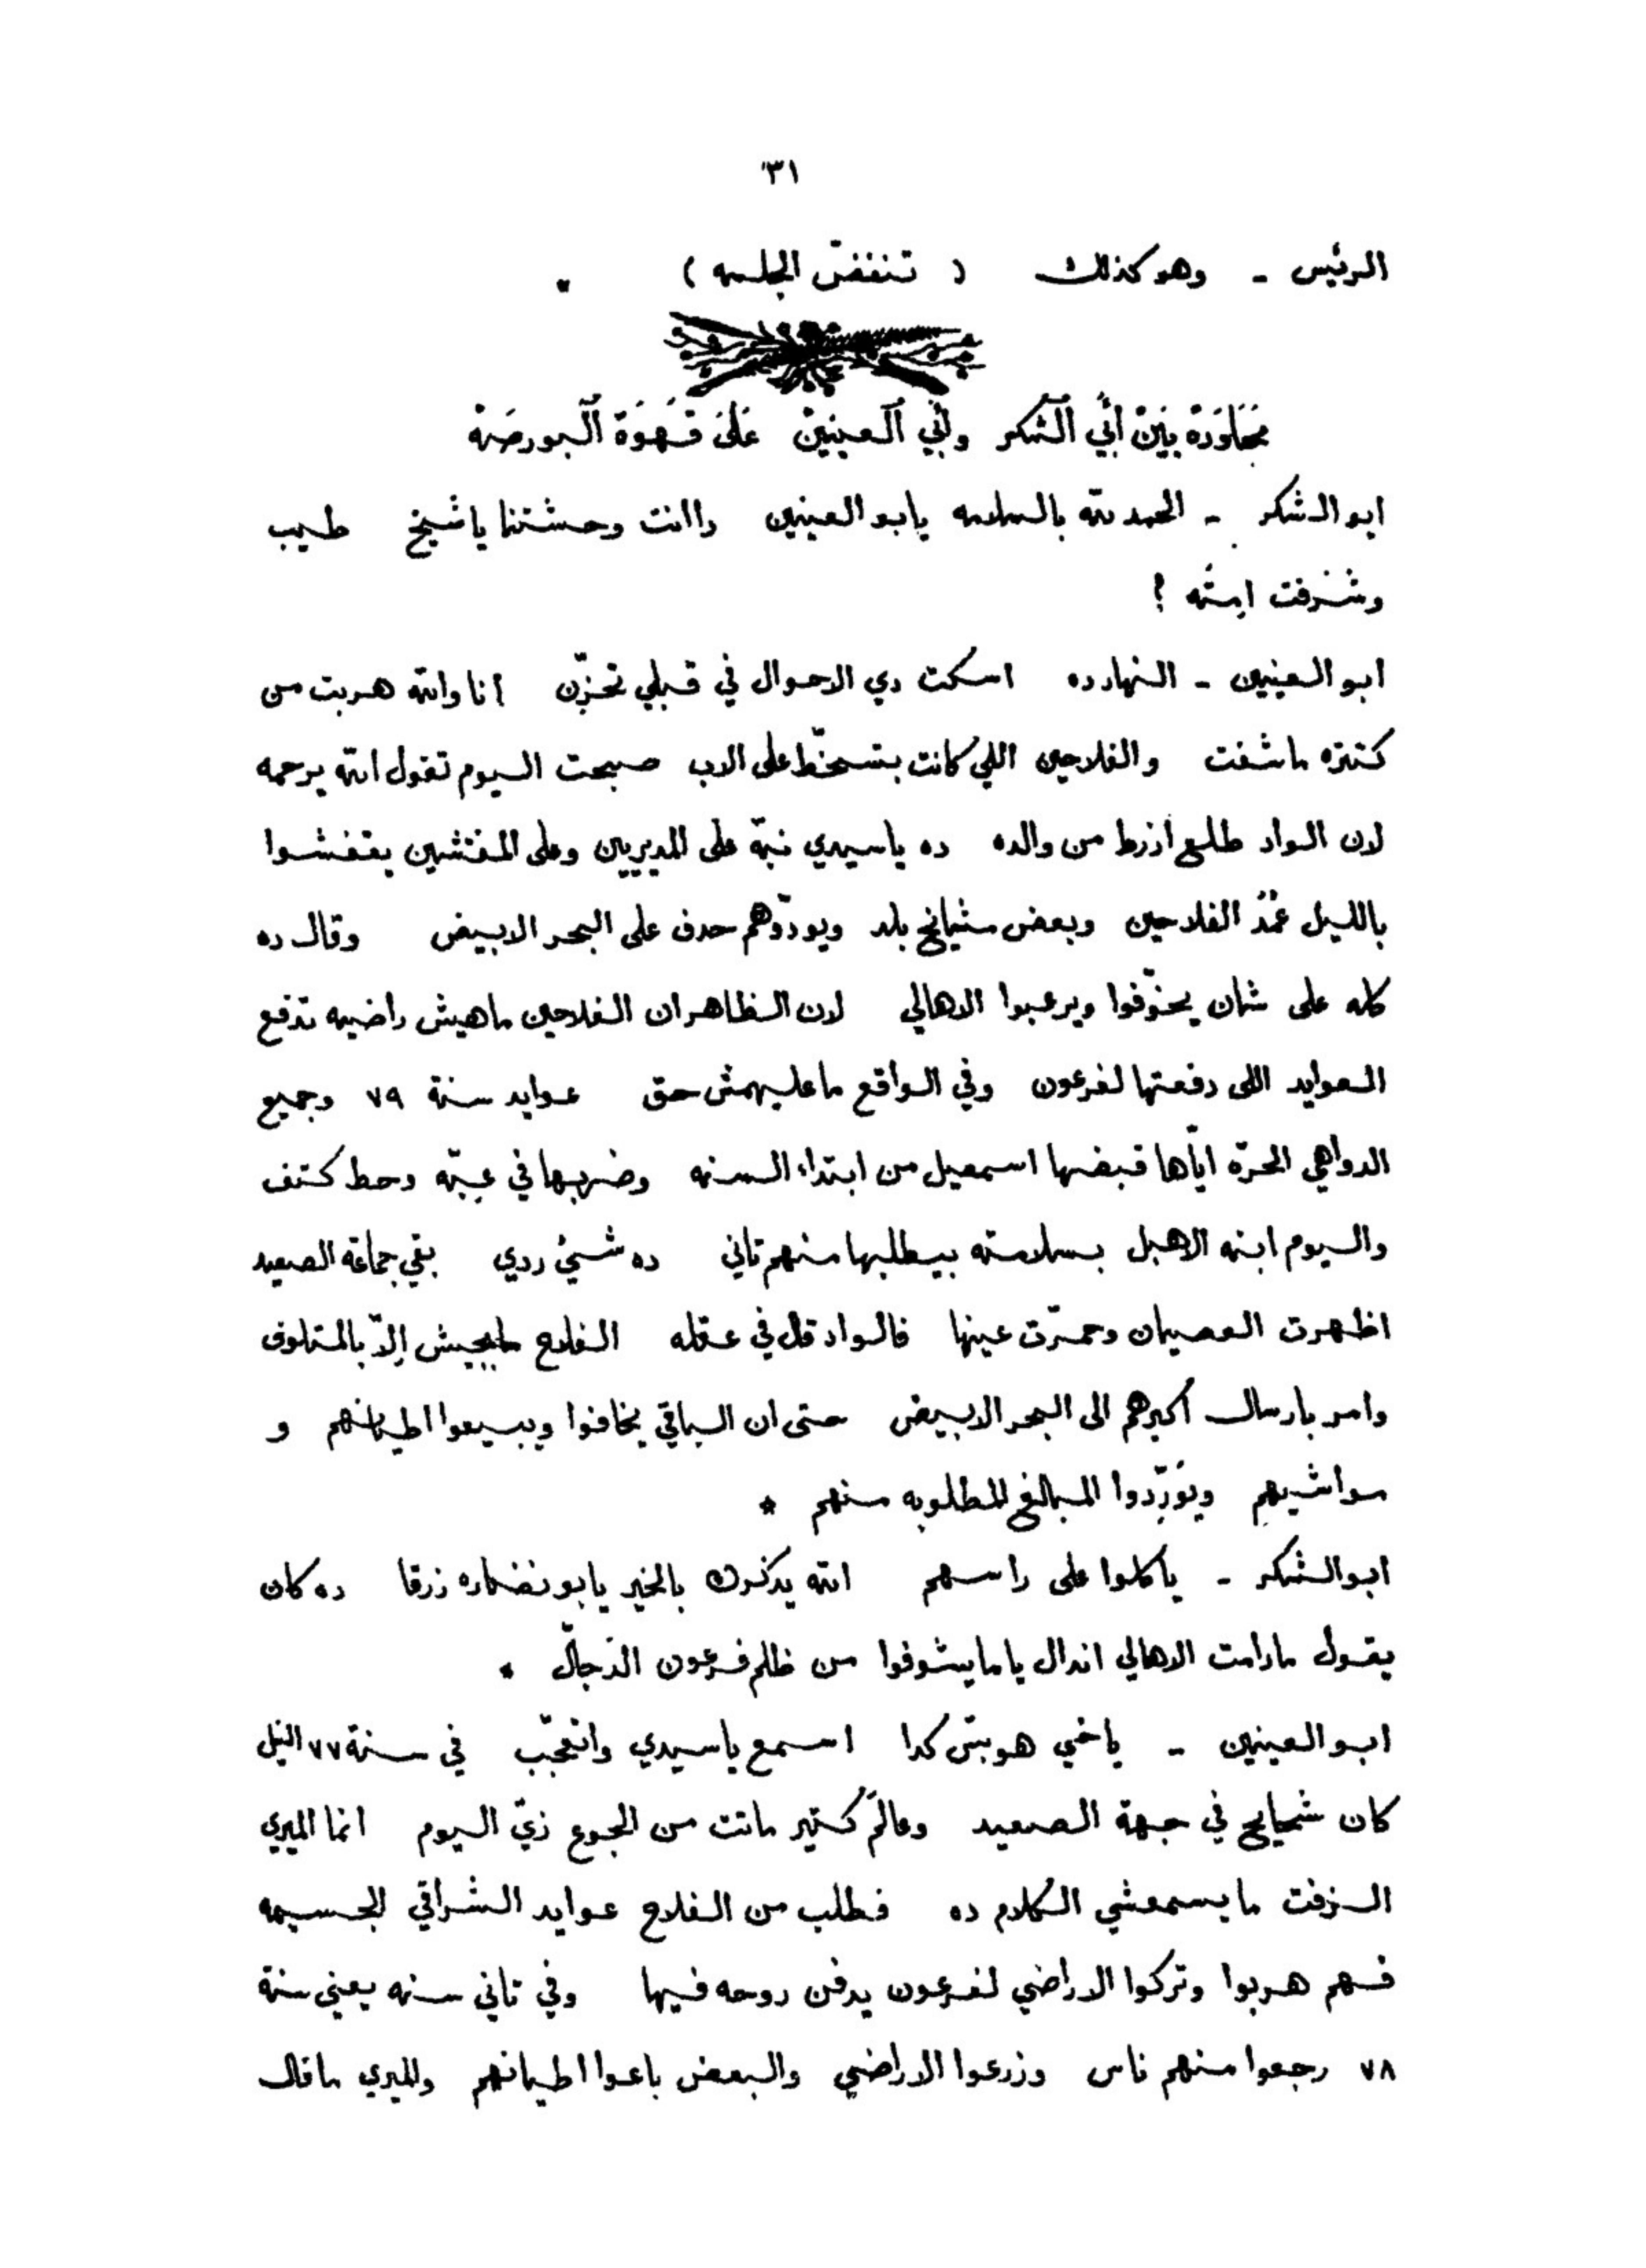 ٣١
الرئيس ـ وهو كذلك ( تنفضّ الجلسه )
مُحَاوَرَة بَيْنَ أَبِي ٱلشُّكر وأَبِي ٱلعينين عَلَىَ قَهْوَة ٱلبورصَة
ابو الشكر ـ الحمد لله بالسلامه يا ابو العينين واانت وحشتنا يا شيخ طيب
وشرفت ايمتَه ؟
ابو العينين ـ النهارده اسكت دي الاحوال في قبلي تحزّن انا والله هربت من
كتره ماشفت والفلاحين اللي كانت بتسخّط على الاب صبحت اليوم تقول الله يرحمه
لان الواد طلع اُزرط من والده ده ياسيدي نبّه على المديريين وعلى المفتشين يقفشوا
بالليل عُمَدْ الفلاحين وبعض مشيايخ بلد ويودّوهم حدف على البحر الابيض وقال ده
كله على شان يخوّفوا ويرعبوا الاهالي لان الظاهر ان الفلاحين ماهيش راضيه تدفع
العوايد اللي دفعتها لفرعون وفي الواقع ما عليهمش حق عوايد سنة ٧٩ وجميع
الدواهي الحرّه ايّاها قبضها اسمعيل من ابتداء السنه وضربها في عبّه وحط كتف
واليوم ابنه الاهبل بسلامته بيطلبها منهم تاني ده شيئ ردي بقي جماعة الصعيد
اظهرت العصيان وحمّرت عينها فالواد قال في عقله الفلاح مايجيش إلاّ بالمتلوف
وامر بارسال أكبرهم الى البحر الابيض حتى ان الباقي يخافوا ويبيعوا اطيانهم و
مواشيهم ويَورّدوا المبالغ المطلوبه منهم *
ابو الشكر ـ ياكلوا على راسهم الله يذكرك بالخير يا بو نضاره زرقا ده كان
يقول مادامت الاهالي اندال ياما يشوفوا من ظلم فرعون الدّجاّل *
ابو العينين ـ ياخي هو بسّ كدا اسمع ياسيدي واتعجّب في سنة ٧٧ النيل
كان شحيايح في جهة الصعيد وعالَم كتير ماتت من الجوع زيّ اليوم انما الميري
الزفت ما يسمعشي الكلام ده فطلب من الفلاح عوايد الشراقي الجسيمه
فهم هربوا وتركوا الاراضي لفرعون يدفن روحه فيها وفي تاني سنه يعني سنة
٧٨ رجعوا منهم ناس وزرعوا الاراضي والبعض باعوا اطيانهم والميري ما قال